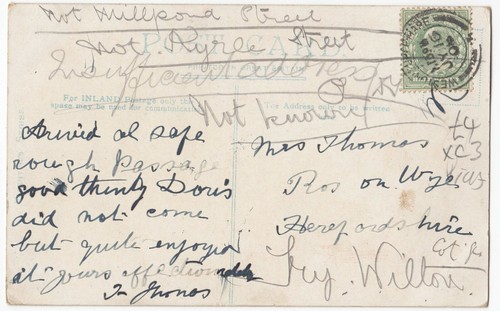 Not Millpond Street
Not Ryrle Street
POST CARD
Insufficient address
For INLAND Postage only this
space may be used for communication
The Address only to be written
Not known
Arrived al safe
rough passage
good thinty Doris
did not come
but quite enjoyed
it yours affectionately
Thomas
Mrs Thomas
Ros on Wye
Herefordshire
Try Wilton
L4
XC3